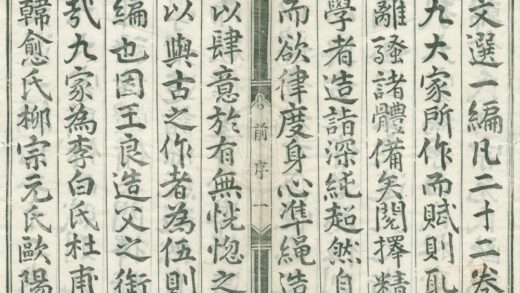 文選一編凡二十二卷
九大家所作而賦則
離騷諸體備矣閱擇精
學者造詣深純超然自
而欲律度身心準繩造
前序一
以肆意於有無恍惚之
以與古之作者為伍則
編也因王良造父之銜
九家為李白氏杜甫
韓愈氏柳宗元氏歐陽